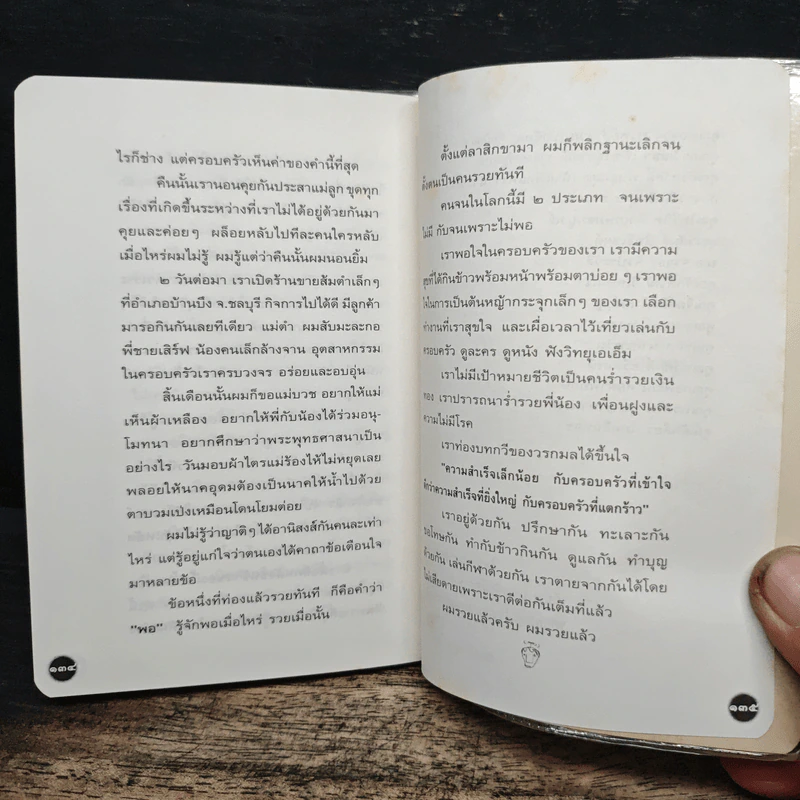 ไรก็ช่าง แต่ครอบครัวเห็นค่าของคำนี้ที่สุด
คืนนั้นเรานอนคุยกันประสาแม่ลูก ขุดทุก
เรื่องที่เกิดขึ้นระหว่างที่เราไม่ได้อยู่ด้วยกันมา
คุยและค่อยๆ ผล็อยหลับไปทีละคนใครหลับ
เมื่อไหร่ผมไม่รู้ ผมรู้แต่ว่าคืนนั้นผมนอนยิ้ม
๒ วันต่อมา เราเปิดร้านขายส้มตำเล็กๆ
ที่อำเภอบ้านบึง จ.ชลบุรี กิจการไปได้ดี มีลูกค้า
มารอกินกันเลยทีเดียว แม่ตำ ผมสับมะละกอ
พี่ชายเสิร์ฟ น้องคนเล็กล้างจาน อุตสาหกรรม
ในครอบครัวเราครบวงจร อร่อยและอบอุ่น
สิ้นเดือนนั้นผมก็ขอแม่บวช อยากให้แม่
เห็นผ้าเหลือง อยากให้พี่กับน้องได้ร่วมอนุ-
โมทนา อยากศึกษาว่าพระพุทธศาสนาเป็น
อย่างไร วันมอบผ้าไตรแม่ร้องไห้ไม่หยุดเลย
พลอยให้นาคอุดมต้องเป็นนาคให้น้ำไปด้วย
ตาบวมเป่งเหมือนโดนโยมต่อย
ผมไม่รู้ว่าญาติๆ ได้อานิสงส์กันคนละเท่า
ไหร่ แต่รู้อยู่แก่ใจว่าตนเองได้คาถาข้อเตือนใจ
มาหลายข้อ
ข้อหนึ่งที่ท่องแล้วรวยทันที ก็คือคำว่า
"พอ" รู้จักพอเมื่อไหร่ รวยเมื่อนั้น
๑๓๔
ตั้งแต่ลาสิกขามา ผมก็พลิกฐานะเลิกจน
ตั้งตนเป็นคนรวยทันที
คนจนในโลกนี้มี ๒ ประเภท จนเพราะ
ไม่มี กับจนเพราะไม่พอ
เราพอใจในครอบครัวของเรา เรามีความ
สุขที่ได้กินข้าวพร้อมหน้าพร้อมตาบ่อย ๆ เราพอ
ใจในการเป็นต้นหญ้ากระจุกเล็กๆ ของเรา เลือก
ทำงานที่เราสุขใจ และเผื่อเวลาไว้เที่ยวเล่นกับ
ครอบครัว ดูละคร ดูหนัง ฟังวิทยุเอเอ็ม
เราไม่มีเป้าหมายชีวิตเป็นคนร่ำรวยเงิน
ทอง เราปรารถนาร่ำรวยพี่น้อง เพื่อนฝูงและ
ความไม่มีโรค
เราท่องบทกวีของวรกมลได้ขึ้นใจ
"ความสำเร็จเล็กน้อย กับครอบครัวที่เข้าใจ
ดีกว่าความสำเร็จที่ยิ่งใหญ่ กับครอบครัวที่แตกร้าว"
เราอยู่ด้วยกัน ปรึกษากัน ทะเลาะกัน
ขอโทษกัน ทำกับข้าวกินกัน ดูแลกัน ทำบุญ
ด้วยกัน เล่นกีฬาด้วยกัน เราตายจากกันได้โดย
ไม่เสียดายเพราะเราดีต่อกันเต็มที่แล้ว
ผมรวยแล้วครับ ผมรวยแล้ว
๑๓๕